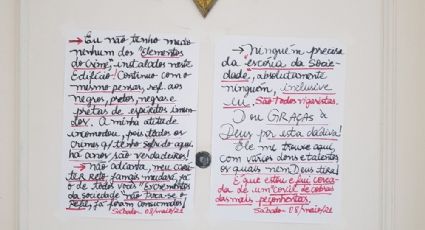 → Eu não tenho medo
nenhum dos "elementos
do crime", instalados neste
Edifício! Continuo com o
mesmo pensar, ref. aos
negros, pretos, negras e
pretas de espíritos
A minha atitude
incomodou, pois todos os
crimes q/ tenho sofrido aqui,
há anos são verdadeiros!
→ não adianta, meu
RETO, jamais
o de todos vocês "excrementos
da sociedade"
já foram consumados!
Sábado - 08/maio/21
→ Ninguém precisa
da "escória da socie-
dade", absolutamente
ninguém, inclusive
eu. São todos vigaristas.
Dou GRAÇAS a
Deus por esta dádiva!
Ele me trouxe aqui,
com vários dons e talentos
os quais nem Deus tira!
E que estou e fui cerca-
da de um "covil de cobras
das mais peçonhentas.
Sábado - 08/maio/21